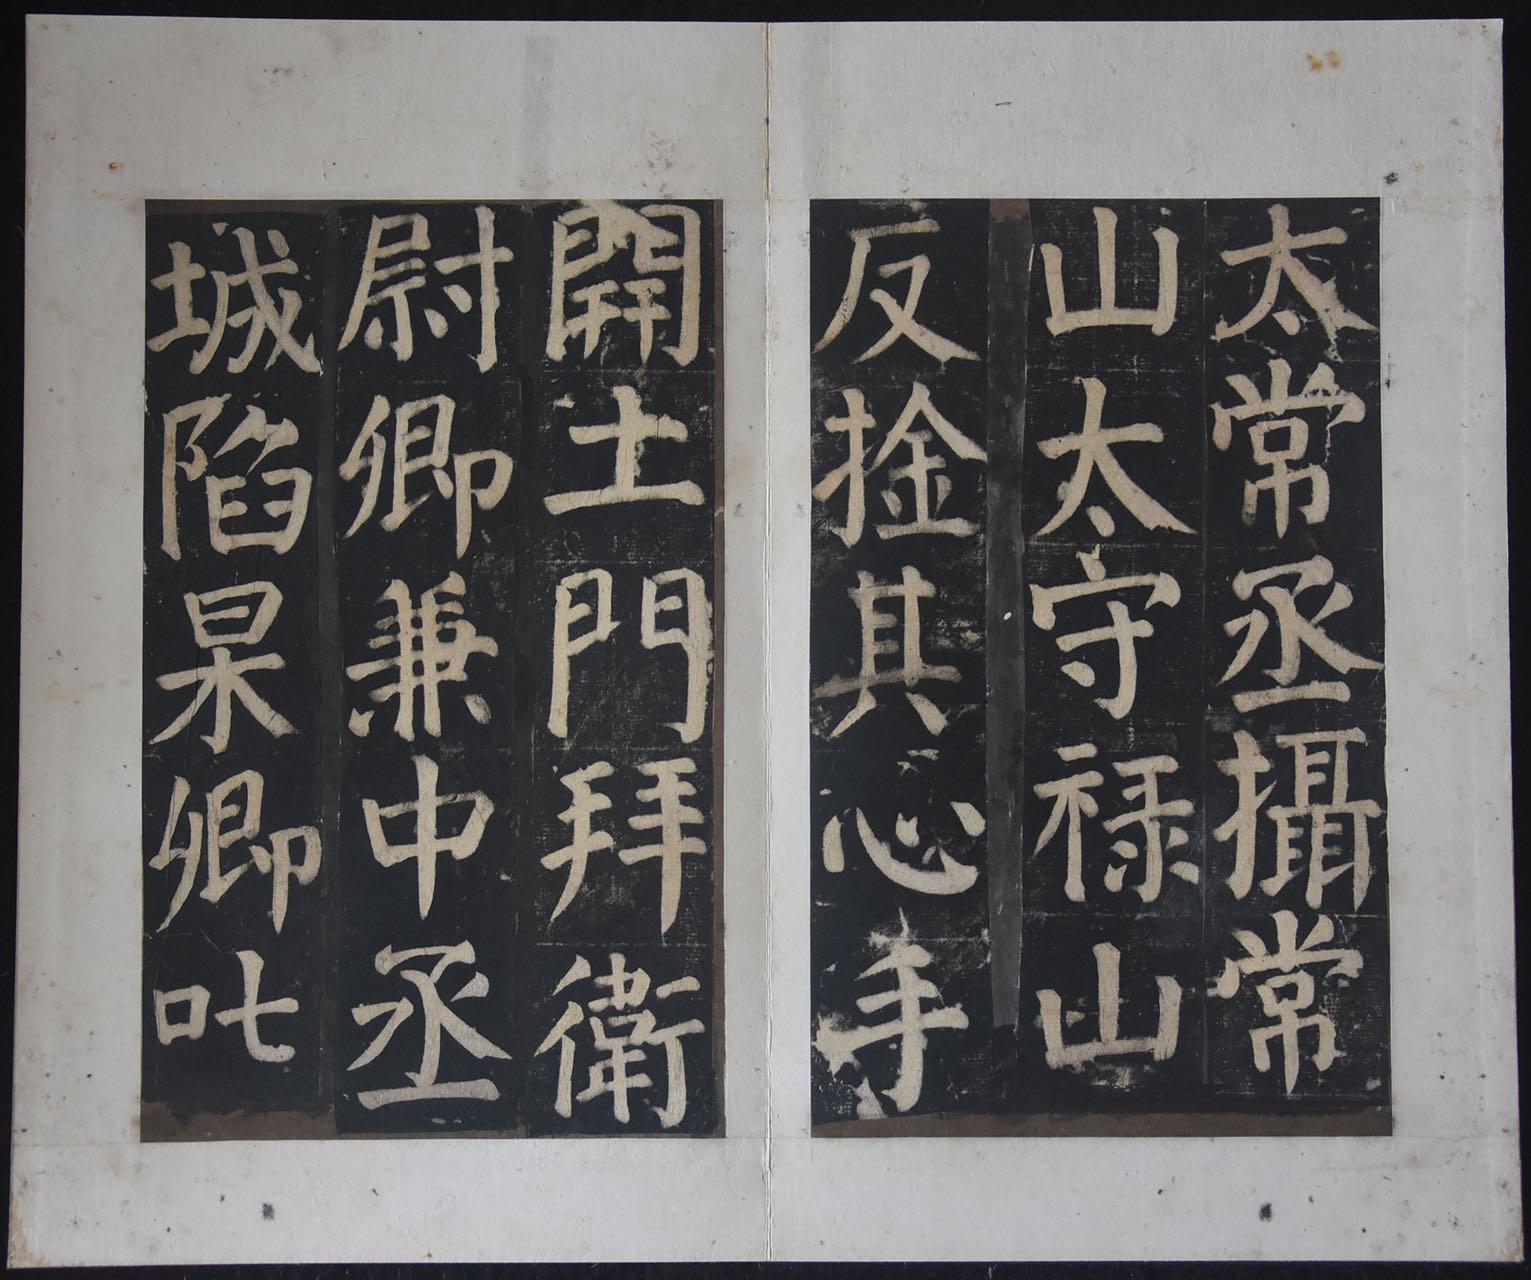 太常丞攝常
山太守禄山
反捦其心手
開土門拜衛
尉卿兼中丞
城陷杲卿叱